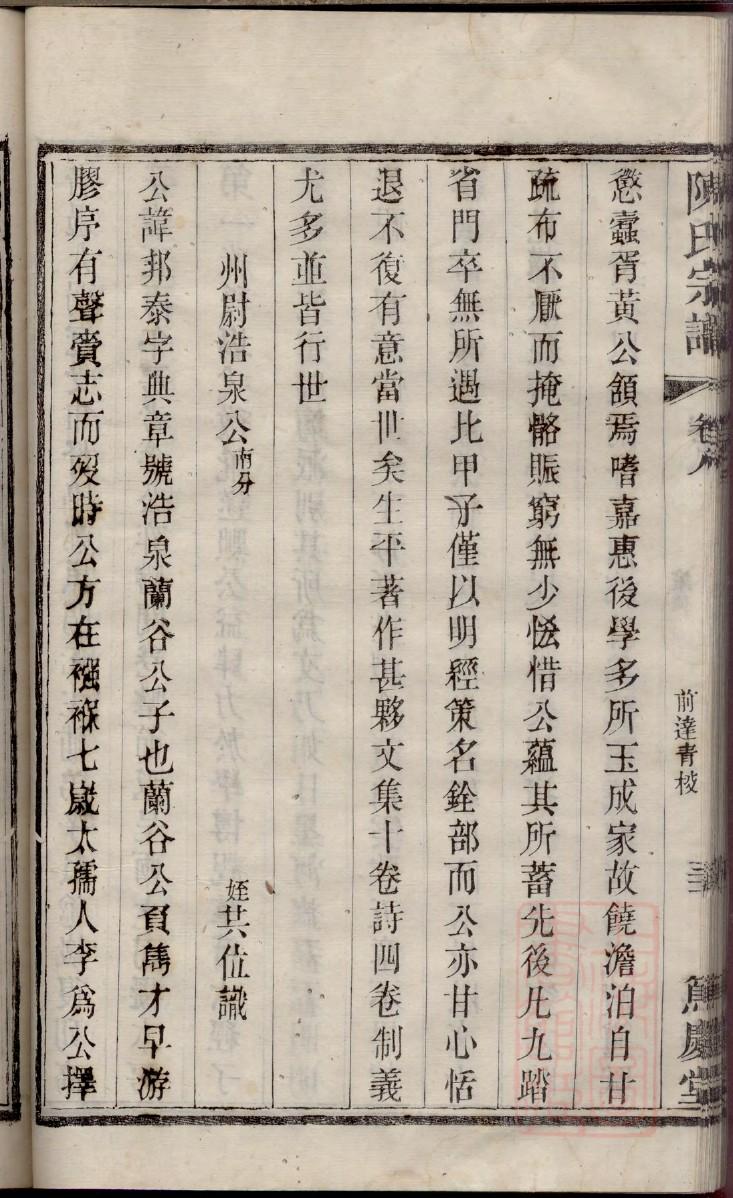 陳氏宗譜
卷八
前達青棱
三
篤慶堂
懲蠹胥黃公頷焉嗜嘉惠後學多所玉成家故饒澹泊自甘
疏布不厭而掩骼賑窮無少恡惜公蘊其所蓄先後凡九踏
省門卒無所遇比甲子僅以明經策名銓部而公亦甘心恬
退不復有意當世矣生平著作甚夥文集十卷詩四卷制義
尤多並皆行世
姪其位識
州尉浩泉公南分
公諱邦泰字典章號浩泉蘭谷公子也蘭谷公負雋才早游
膠序有聲賫志而歿時公方在襁褓七歲太孺人李爲公擇